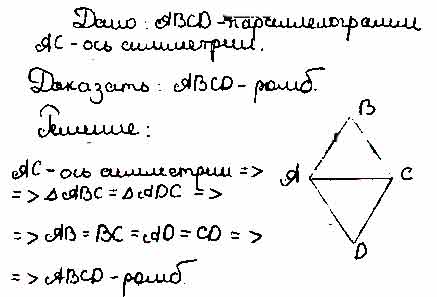 Дано: ABCD - параллелограмм
AC - ось симметрии.
Доказать: ABCD - ромб.
Решение:
AC - ось симметрии =>
=> ΔABC = ΔADC =>
=> AB = BC = AD = CD =>
=> ABCD - ромб.
B
A
C
D